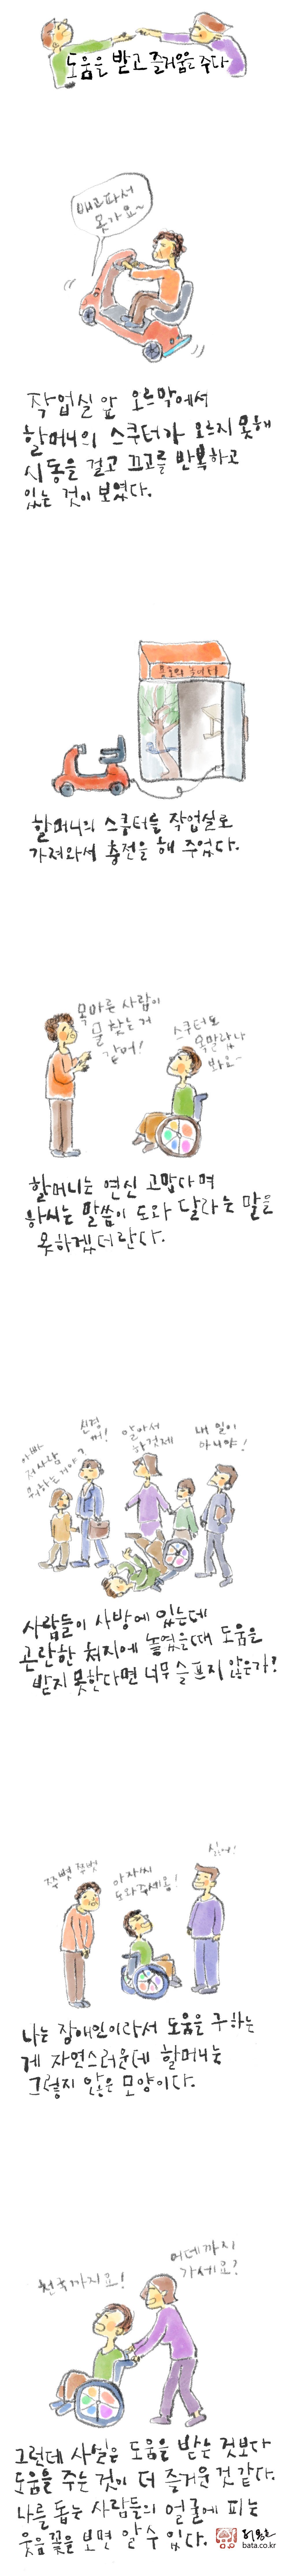 도움을 받고 즐거움을 주다
배고파서
못가요~
작업실 앞 오르막에서
할머니의 스쿠터가 오르지 못해
시동을 걸고 끄고를 반복하고
있는 것이 보였다.
할머니의 스쿠터를 작업실로
가져와서 충전을 해 주었다.
목마른 사람이
물 찾는 거
같어!
스쿠터도
목말랐나
봐요~
할머니는 연신 고맙다며
하시는 말씀이 도와 달라는 말을
못하겠더란다.
아빠
저사람
뭐하는거야?
신경
꺼!
알아서
하겄제
내 일이
아니야!
사람들이 사방에 있는데
곤란한 처지에 놓였을때 도움을
받지 못한다면 너무 슬프지 않은가!
쭈뼛 쭈뼛
아자씨
도와주세용!
싫어!
나는 장애인이라서 도움을 구하는
게 자연스러운데 할머니는
그렇지 않은 모양이다.
천국까지요!
어데까지
가세요?
그런데 사실은 도움을 받는 것보다
도움을 주는 것이 더 즐거운 것 같다.
나를 돕는 사람들의 얼굴에 피는
웃음꽃을 보면 알 수 있다.
bata.co.kr